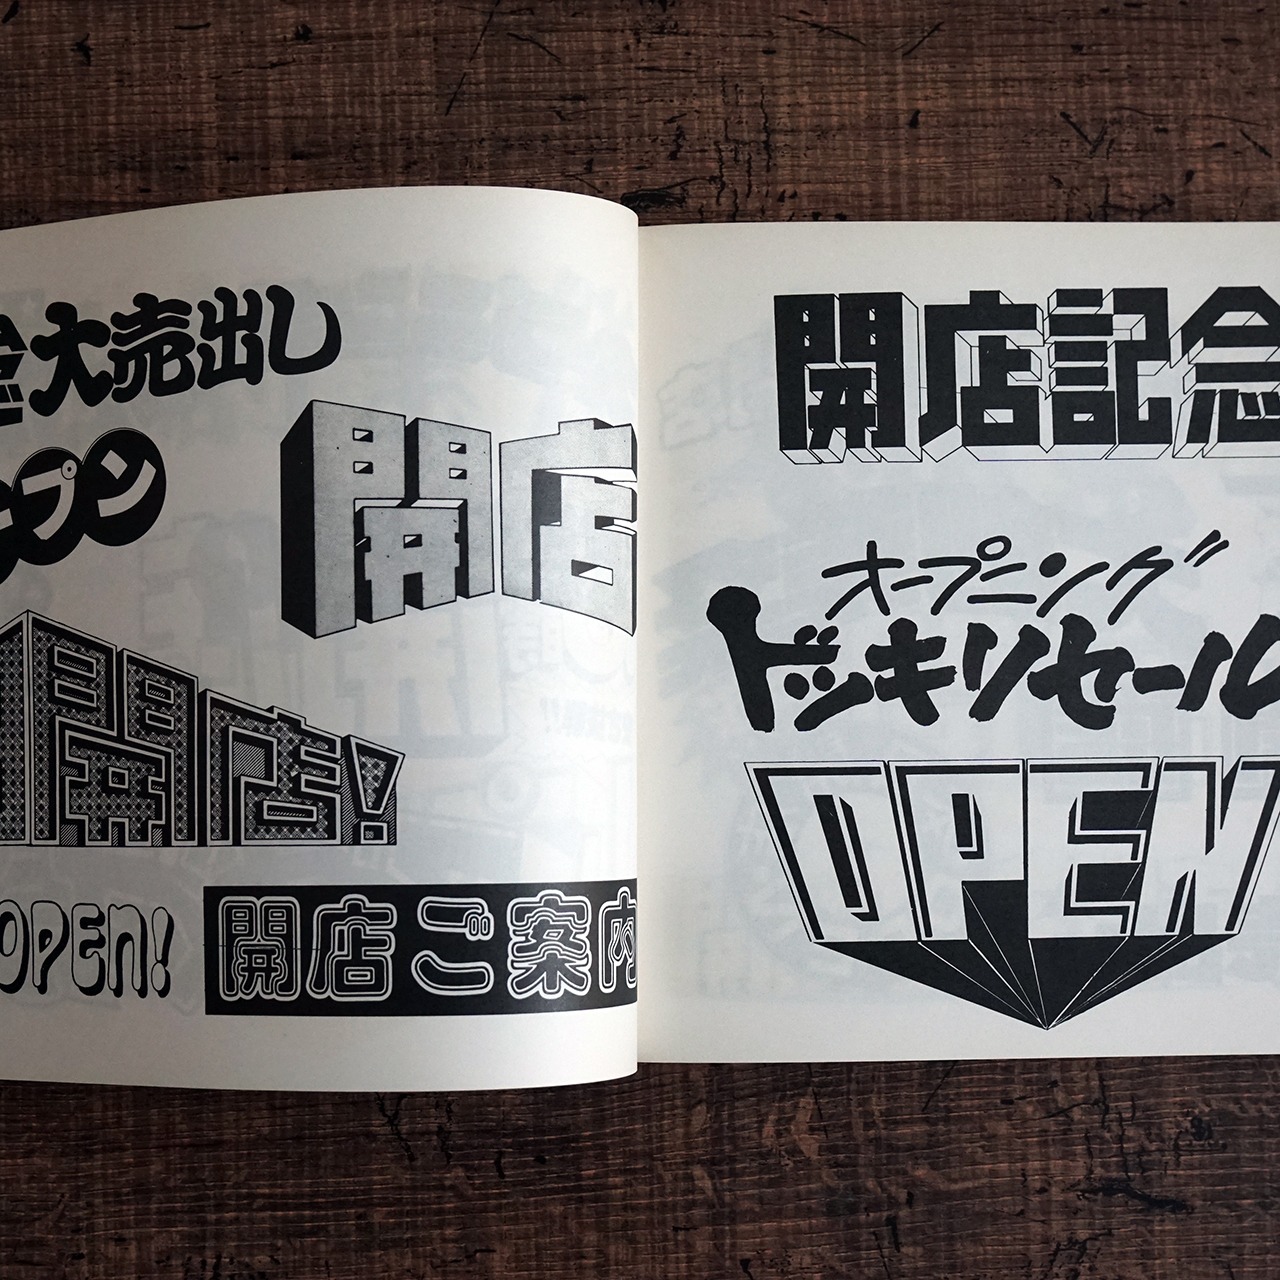 念大売出し
ープン
開店
開店!
OPEN!
開店ご案内
開店記念
オープニング
ドッキリセール
OPEN